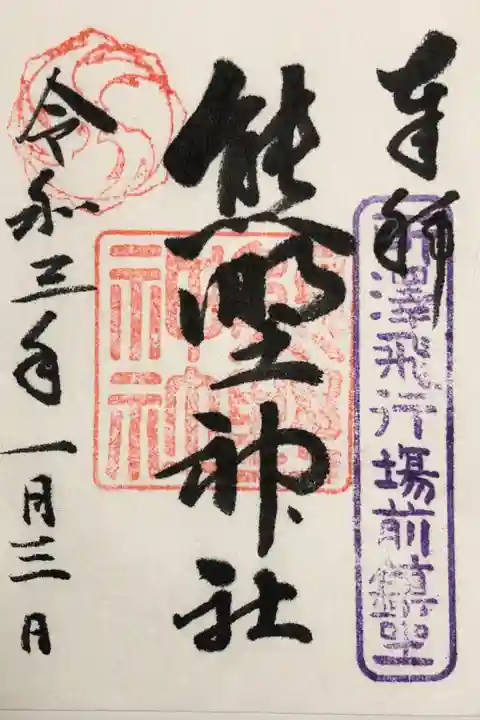 奉拝
所澤飛行場前鎮坐
熊野神社
熊野
神社
令和三年一月三日